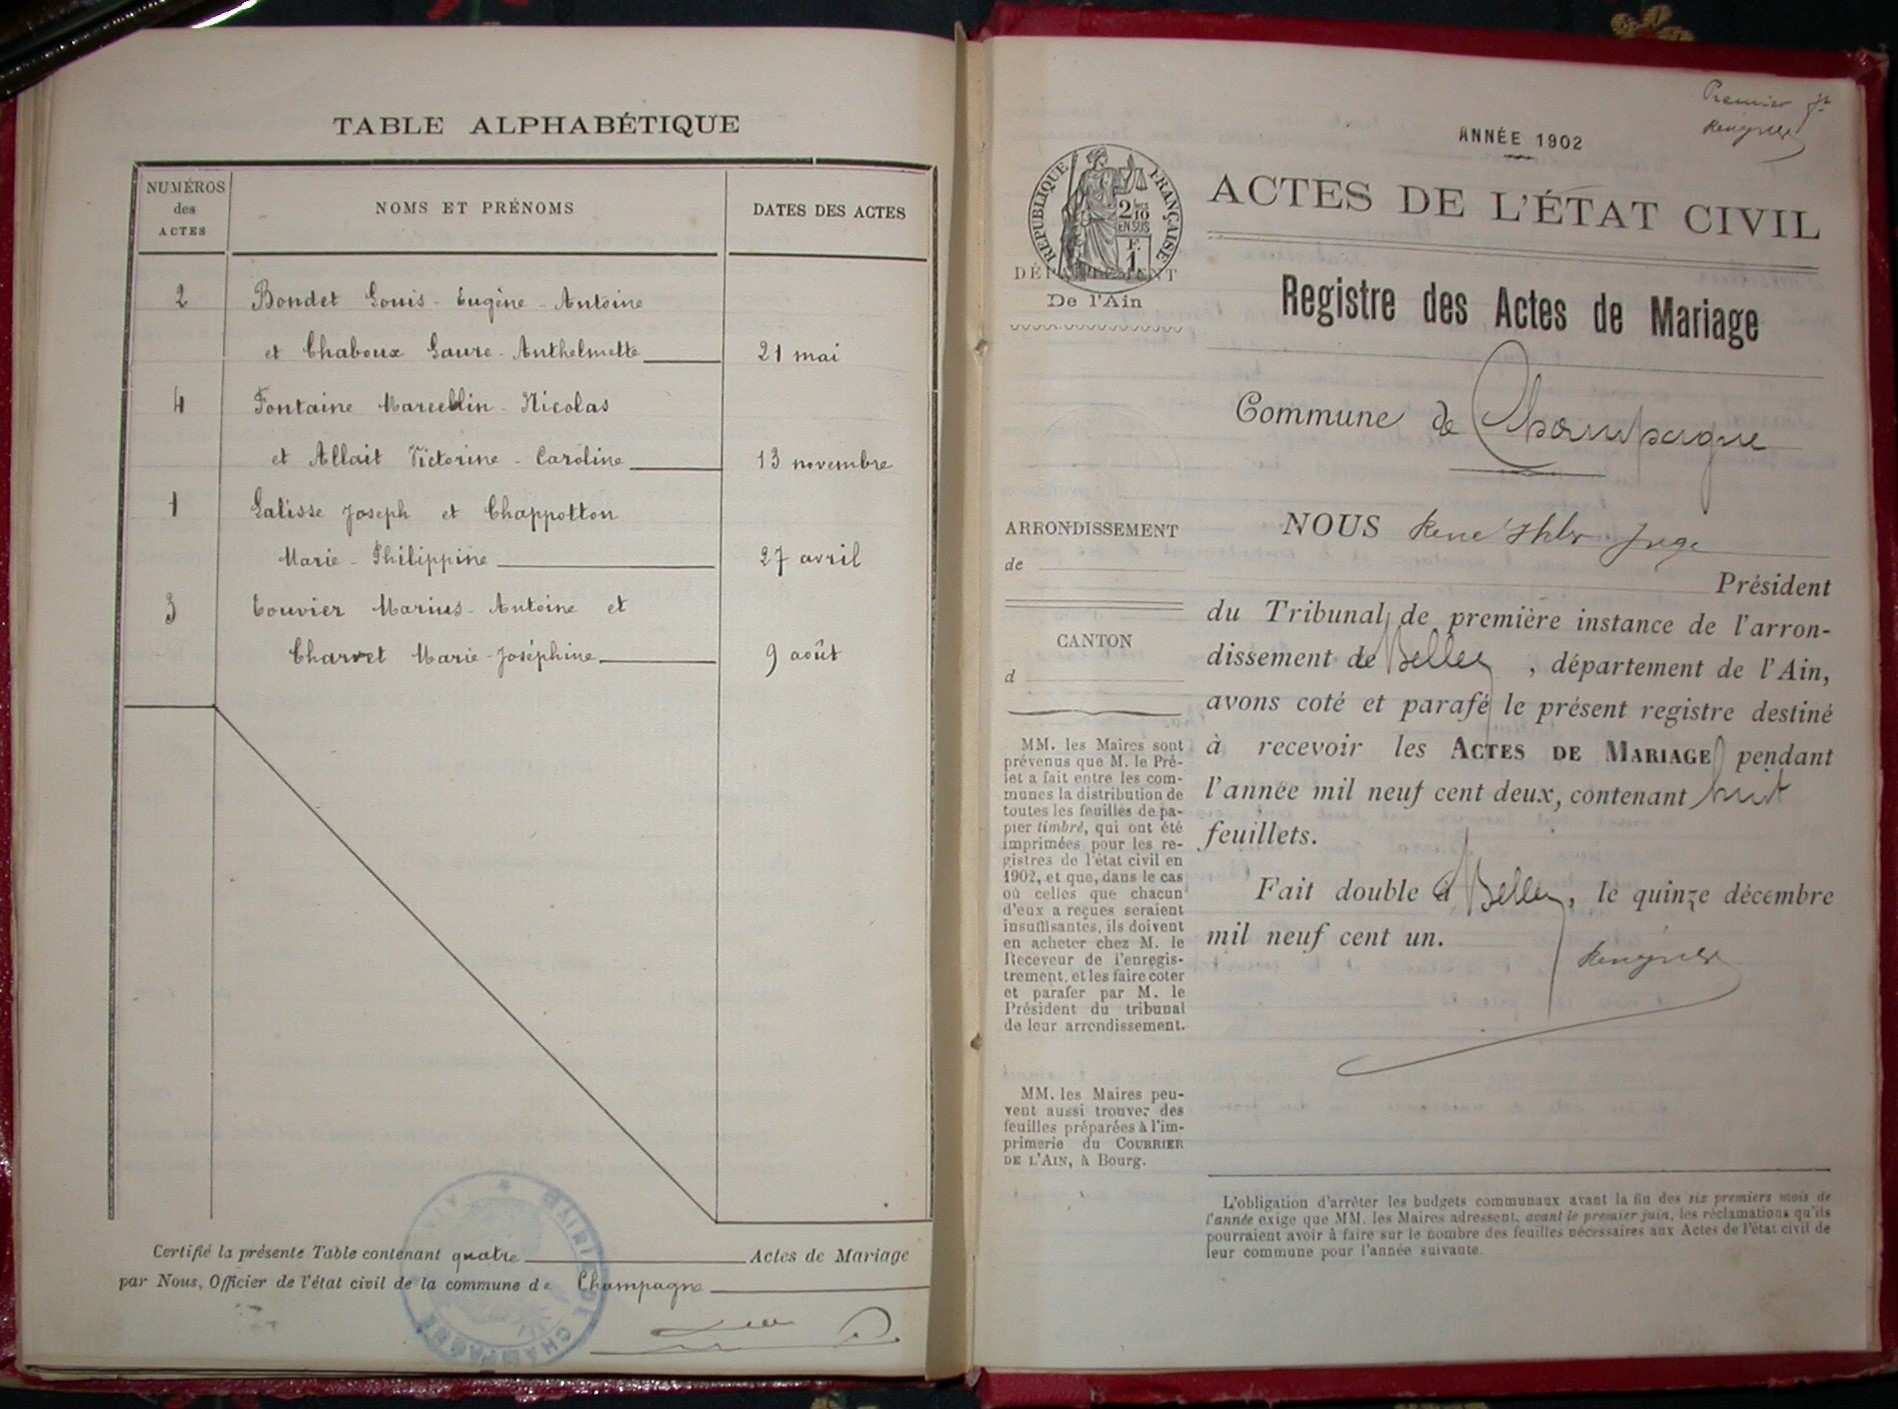 TABLE ALPHABÉTIQUE
NUMÉROS des ACTES
NOMS ET PRÉNOMS
DATES DES ACTES
2 Bondet Louis - Eugène - Antoine
et Chaboux Laure - Anthelmette 21 mai
4 Fontaine Marcellin - Nicolas
et Allait Victorine - Caroline 13 novembre
1 Lalisse Joseph et Chappotton
Marie - Philippine 27 avril
3 Touvier Marius - Antoine et
Charvet Marie - Joséphine 9 août
Certifié la présente Table contenant quatre Actes de Mariage
par Nous, Officier de l'état civil de la commune de Champagne
MAIRIE DE CHAMPAGNE
AIN
Premier
ANNÉE 1902
RÉPUBLIQUE FRANÇAISE
2/10
EN SUS
F.
1
ACTES DE L'ÉTAT CIVIL
DÉPARTEMENT
De l'Ain
Registre des Actes de Mariage
Commune de Champagne
ARRONDISSEMENT
de
CANTON
d
MM. les Maires sont
prévenus que M. le Pré-
fet a fait entre les com-
munes la distribution de
toutes les feuilles de pa-
pier timbré, qui ont été
imprimées pour les re-
gistres de l'état civil en
1902, et que, dans le cas
où celles que chacun
d'eux a reçues seraient
insuffisantes, ils doivent
en acheter chez M. le
Receveur de l'enregis-
trement, et les faire coter
et parafer par M. le
Président du tribunal
de leur arrondissement.
MM. les Maires peu-
vent aussi trouver des
feuilles préparées à l'im-
primerie du COURRIER
DE L'AIN, à Bourg.
NOUS René Juge
Président
du Tribunal de première instance de l'arron-
dissement de Belley, département de l'Ain,
avons coté et parafé le présent registre destiné
à recevoir les ACTES DE MARIAGE pendant
l'année mil neuf cent deux, contenant huit
feuillets.
Fait double à Belley, le quinze décembre
mil neuf cent un.
L'obligation d'arrêter les budgets communaux avant la fin des six premiers mois de
l'année exige que MM. les Maires adressent, avant le premier juin, les réclamations qu'ils
pourraient avoir à faire sur le nombre des feuilles nécessaires aux Actes de l'état civil de
leur commune pour l'année suivante.